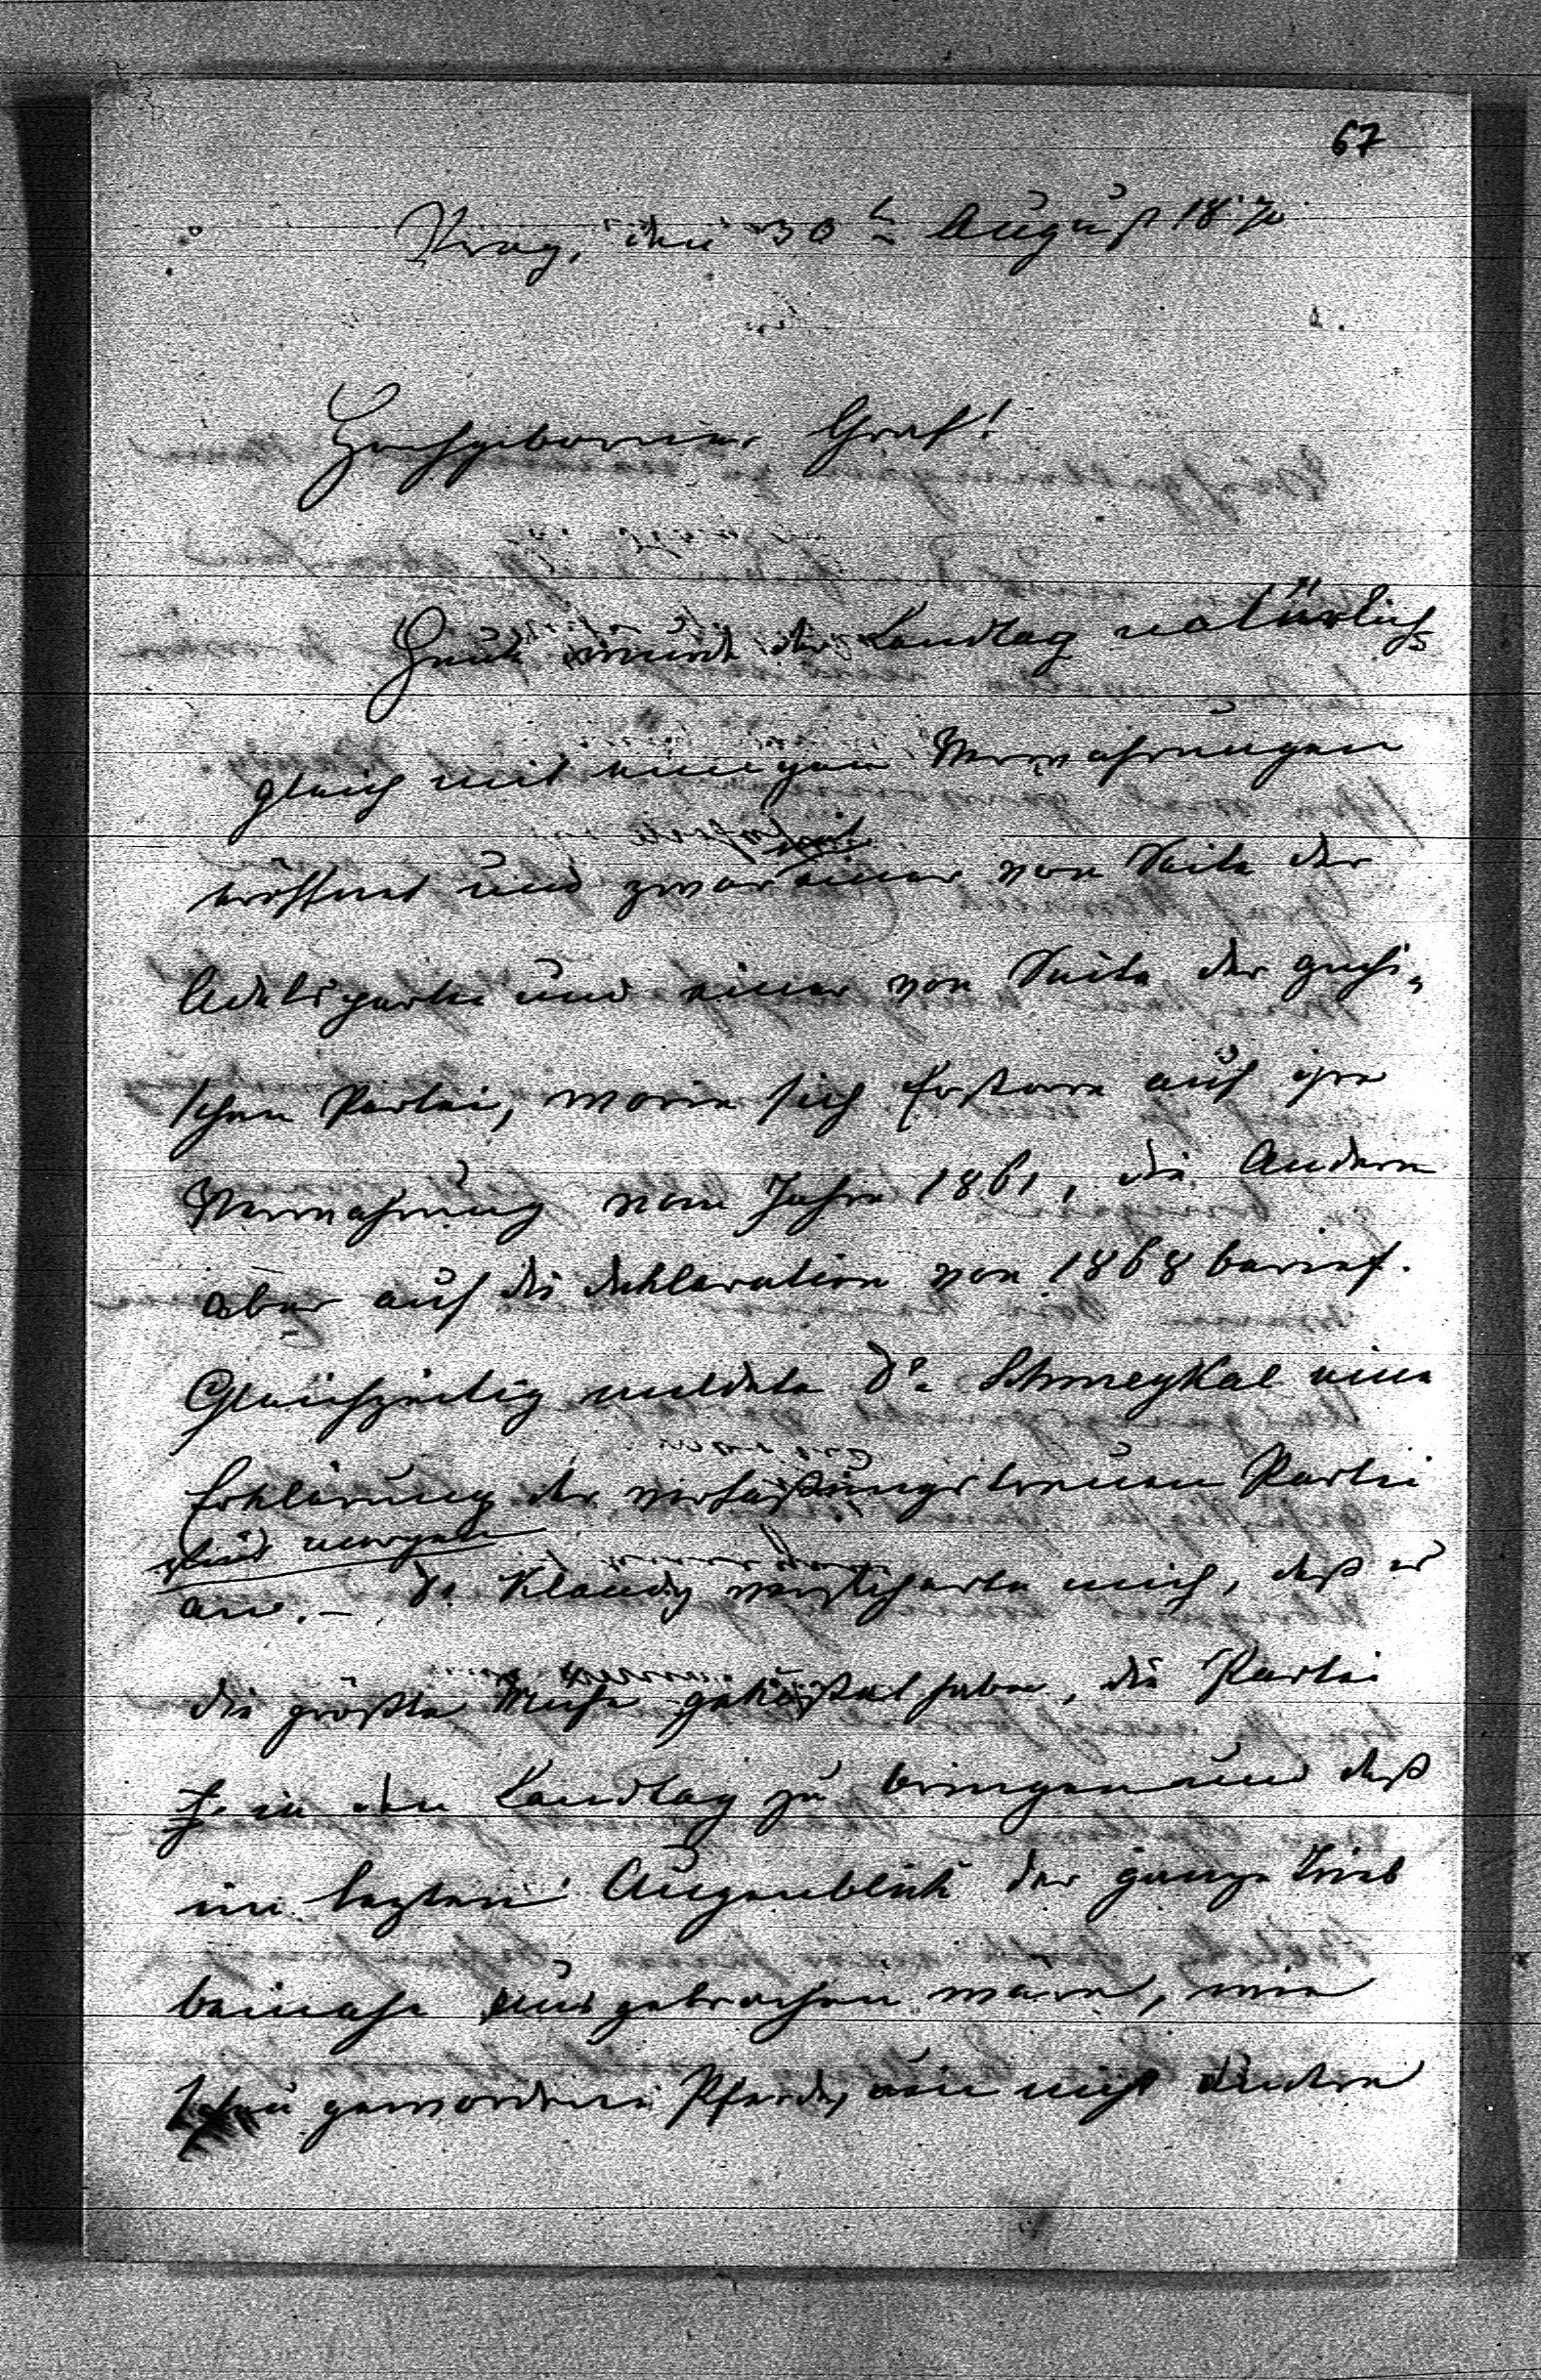 67
Prag, den 30t August 1870
Hochgeborner Graf!
Heute wurde der Landtag natürlich
gleich mit einigen Verwahrungen
eröffnet und zwar einer von Seite der
Adelspartei und einer von Seite der czechi„
schen Partei, worin sich Erstere auf ihre
Verwahrung vom Jahre 1861, die Andere
aber auf die deklaration von 1868 berief.
Gleichzeitig meldete Dr. Schmeykal eine
Erklärung der verfaßungstreuen Partei
für morgen
an. – Dr. Klaudy versicherte mich, daß es
die größte Mühe gekostet habe, die Partei
in den Landtag zu bringen und daß
im lezten Augenblick der ganze
beinahe ausgebrochen wäre, wie
scheu gewordene Pferde, wenn nicht